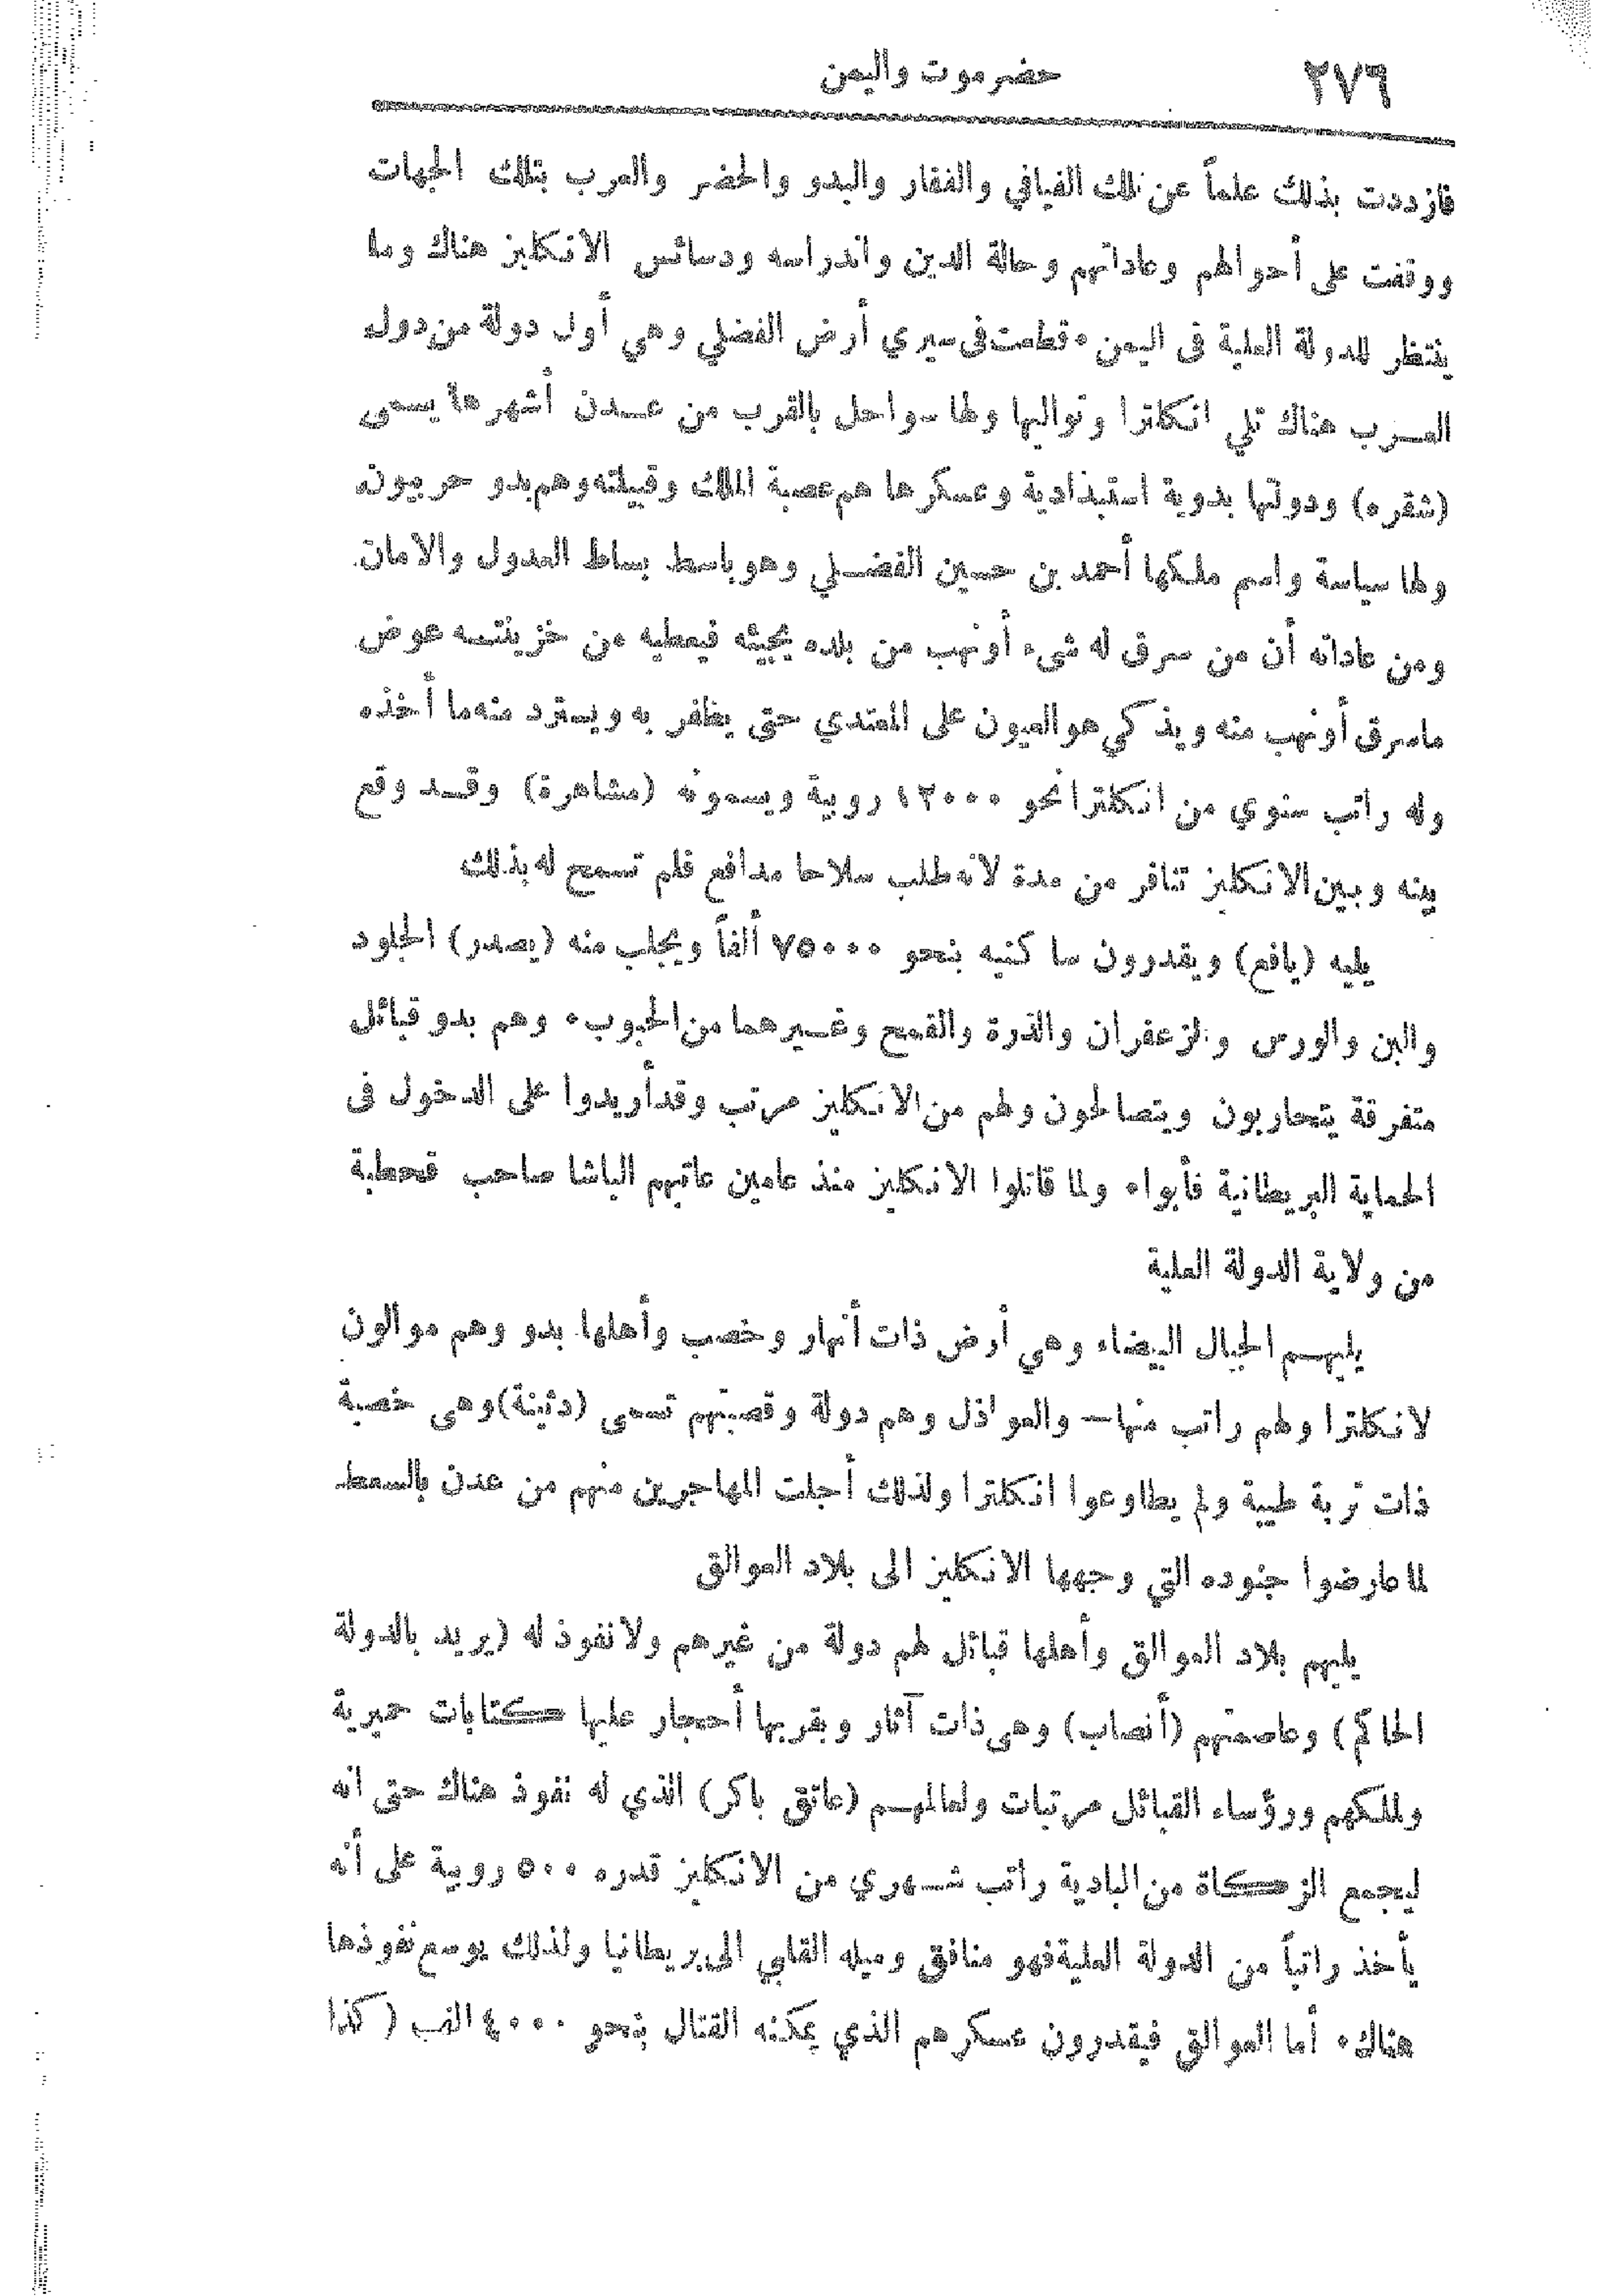 ٢٧٦
حضرموت واليمن
فازددت بذلك علماً عن تلك الفيافي والفقار والبدو والحضر والعرب بتلك الجهات
ووقفت على أحوالهم وعاداتهم وحالة الدين واندراسه ودسائس الانكليز هناك وما
ينتظر للدولة العلية فى اليمن ٠ قطعت فى سيري أرض الفضلي وهي أول دولة من دول
العرب هناك تلي انكلترا وتواليها ولها سواحل بالقرب من عدن أشهرها يسمى
(شقره) ودولتها بدوية استبدادية وعسكرها هم عصبة الملك وقبيلته وهم بدو حربيون
ولها سياسة واسم ملكها أحمد بن حسين الفضلي وهو باسط بساط العدول والامان
ومن عاداته أن من سرق له شيء أو نهب من بلاده يجيئه فيعطيه من خزينته عوض
ما سرق أو نهب منه ويذكي هو العيون على المعتدي حتى يظفر به ويسترد منه ما أخذه
وله راتب سنوي من انكلترا نحو ١٢٠٠٠ روبية ويسمونه (مشاهرة) وقد وقع
بينه وبين الانكليز تنافر من مدة لانه طلب سلاحا مدافع فلم تسمح له بذلك
يليه (يافع) ويقدرون ساكنيه بنحو ٧٥٠٠٠ ألفاً ويجلب منه (يصدر) الجلود
والبن والورس والزعفران والذرة والقمح وغيرهما من الحبوب ٠ وهم بدو قبائل
متفرقة يتحاربون ويتصالحون ولهم من الانكليز مرتب وقد أريدوا على الدخول فى
الحماية البريطانية فأبوا ٠ ولما قاتلوا الانكليز منذ عامين عاتبهم الباشا صاحب قحطبة
من ولاية الدولة العلية
يليهم الجبال البيضاء وهي أرض ذات أنهار وخصب وأهلها بدو وهم موالون
لانكلترا ولهم راتب منها — والعواذل وهم دولة وقصبتهم تسمى (دثينة) وهى خصبة
ذات تربة طيبة ولم يطاوعوا انكلترا ولذلك أجلت المهاجرين منهم من عدن بالسمط
لما عارضوا جنوده التي وجهها الانكليز الى بلاد العوالق
يليهم بلاد العوالق وأهلها قبائل لهم دولة من غيرهم ولا نفوذ له (يريد بالدولة
الحاكم) وعاصمتهم (أنصاب) وهى ذات آثار وبقربها أحجار عليها كتابات حميرية
ولملكهم ورؤساء القبائل مرتبات ولعالمهم (عاتق باكر) الذي له نفوذ هناك حتى انه
ليجمع الزكاة من البادية راتب شهري من الانكليز قدره ٥٠٠ روبية على أنه
يأخذ راتباً من الدولة العلية فهو منافق وميله القلبي الى بريطانيا ولذلك يوسع نفوذها
هناك ٠ أما العوالق فيقدرون عسكرهم الذي يمكنه القتال بنحو ٤٠٠٠ الف (كذا